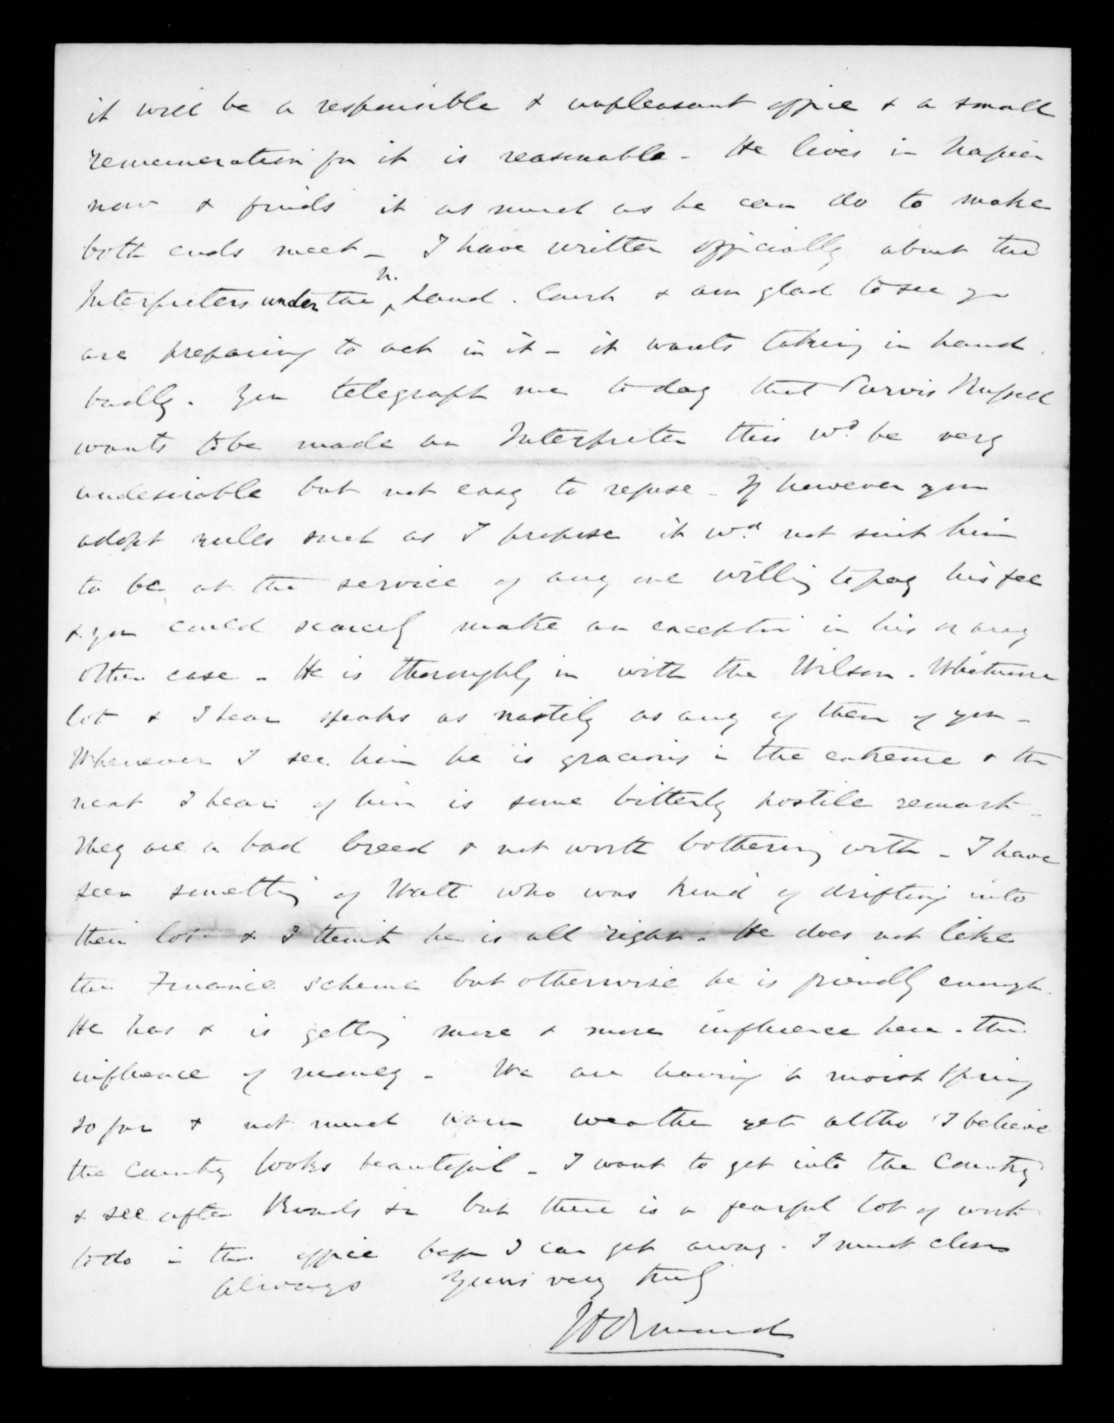 it will be a responsible & unpleasant office & a small
remuneration for it is reasonable - He lives in Napier
now & finds it as much as he can do to make
both ends meet - I have written officially about the
Interpreters under the N. Land Court & am glad to see you
are preparing to act in it - it wants taking in hand
badly. You telegraph me to day that Purvis Russell
wants to be made an Interpreter this wd be very
undesirable but not easy to refuse - If however you
adopt rules such as I propose it wd not suit him
to be at the service of any one willing to pay his fee
& you could scarcely make an exception in his or any
other case - He is thoroughly in with the Wilson - Whitmore
lot & I hear speaks as nastily as any of them of you -
Whenever I see him he is gracious in the extreme & the
next I hear of him is some bitterly hostile remark -
They are a bad breed & not worth bothering with - I have
seen something of Watt who was kind of drifting into
their lot & I think he is all right. He does not like
the Finance scheme but otherwise he is friendly enough.
He has & is getting more & more influence here - the
influence of money - We are having a moist Spring
so far & not much warm weather yet altho' I believe
the country looks beautiful - I want to get into the Country
& see after Roads &c but there is a fearful lot of work
to do in the office before I can get away. I must close
Always Yours very truly
JD Ormond